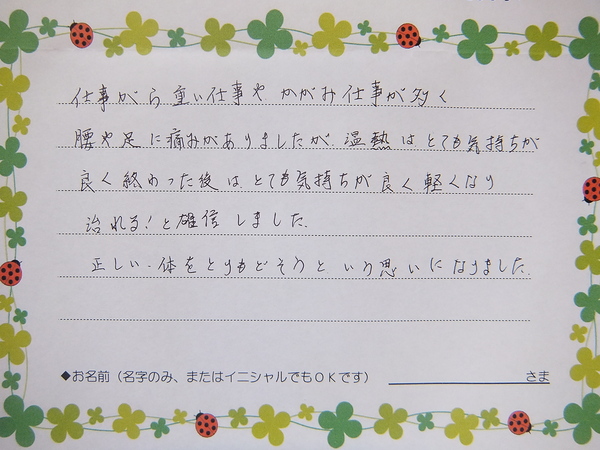 仕事がら重い仕事やかがみ仕事が多く
腰や足に痛みがありましたが、温熱はとても気持ちが
良く終わった後は、とても気持ちが良く軽くなり
治れる!と雄信しました。
正しい体をとりもどそうという思いになりました。
◆お名前（名字のみ、またはイニシャルでもOKです） さま